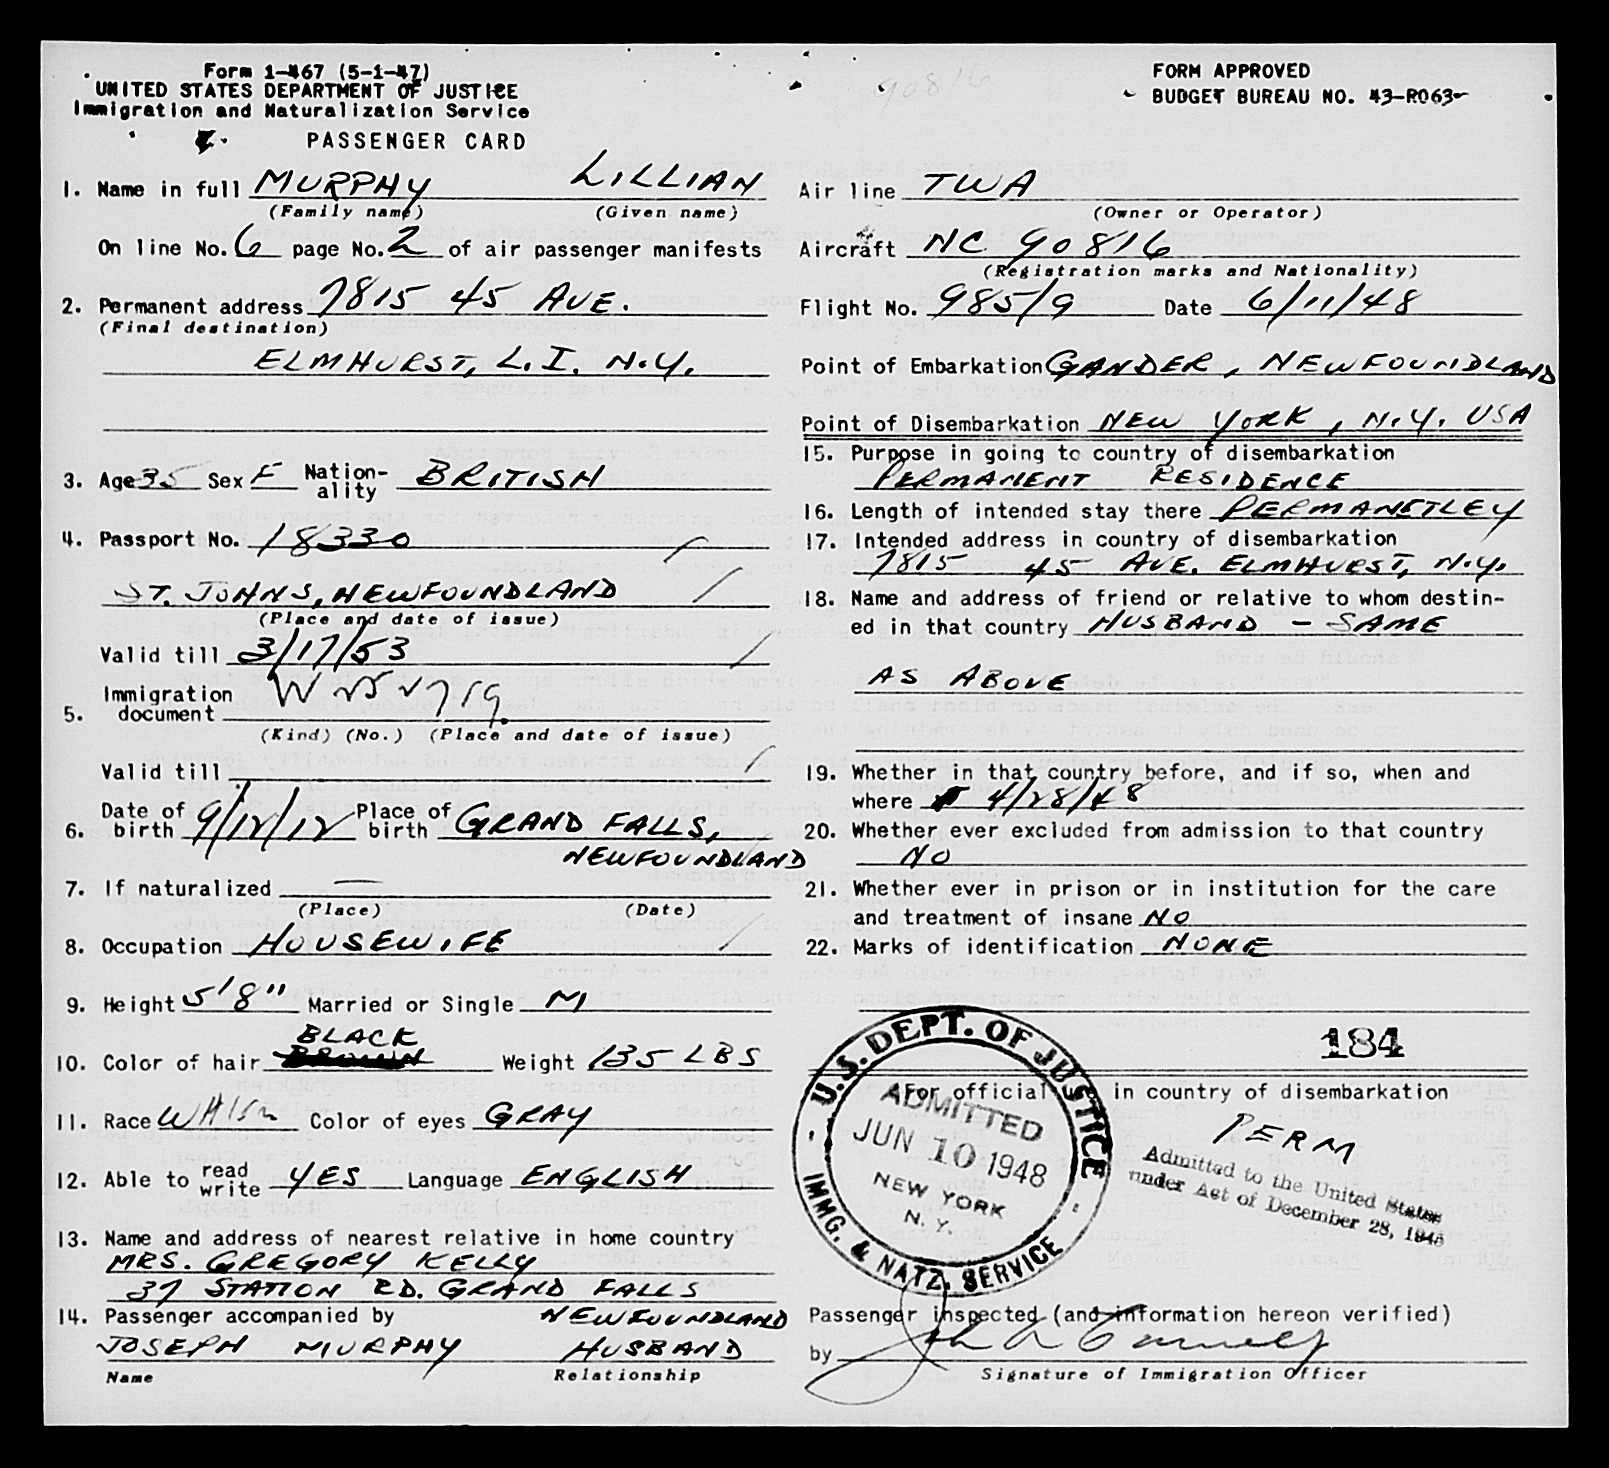 Form 1-467 (5-1-47)
UNITED STATES DEPARTMENT OF JUSTICE
Immigration and Naturalization Service
PASSENGER CARD
90816
FORM APPROVED
BUDGET BUREAU NO. 43-R063
1. Name in full MURPHY LILLIAN
(Family name) (Given name)
On line No. 6 page No. 2 of air passenger manifests
2. Permanent address 7815 45 AVE.
(Final destination)
ELMHURST, L.I. N.Y.
3. Age 35 Sex F Nation-ality BRITISH
4. Passport No. 18330
ST. JOHNS, NEWFOUNDLAND
(Place and date of issue)
Valid till 3/17/53
5. Immigration document
(Kind) (No.) (Place and date of issue)
Valid till
6. Date of birth 9/12/12 Place of birth GRAND FALLS,
NEWFOUNDLAND
7. If naturalized —
(Place) (Date)
8. Occupation HOUSEWIFE
9. Height 5'8" Married or Single M
BLACK
10. Color of hair BROWN Weight 135 LBS
11. Race Color of eyes GRAY
12. Able to read write YES Language ENGLISH
13. Name and address of nearest relative in home country
MRS. GREGORY KELLY
37 STATION RD. GRAND FALLS
14. Passenger accompanied by NEWFOUNDLAND
JOSEPH MURPHY HUSBAND
Name Relationship
Air line TWA
(Owner or Operator)
Aircraft NC 90816
(Registration marks and Nationality)
Flight No. 985/9 Date 6/11/48
Point of Embarkation GANDER, NEWFOUNDLAND
Point of Disembarkation NEW YORK, N.Y. USA
15. Purpose in going to country of disembarkation
PERMANENT RESIDENCE
16. Length of intended stay there PERMANETLEY
17. Intended address in country of disembarkation
7815 45 AVE. ELMHURST, N.Y.
18. Name and address of friend or relative to whom destin-
ed in that country HUSBAND - SAME
AS ABOVE
19. Whether in that country before, and if so, when and
where 4/28/48
20. Whether ever excluded from admission to that country
NO
21. Whether ever in prison or in institution for the care
and treatment of insane NO
22. Marks of identification NONE
184
For official in country of disembarkation
U.S. DEPT. OF JUSTICE
ADMITTED
JUN 10 1948
NEW YORK
N.Y.
IMMG. & NATZ. SERVICE
PERM
Admitted to the United States
under Act of December 28, 1945
Passenger inspected (and information hereon verified)
by
Signature of Immigration Officer